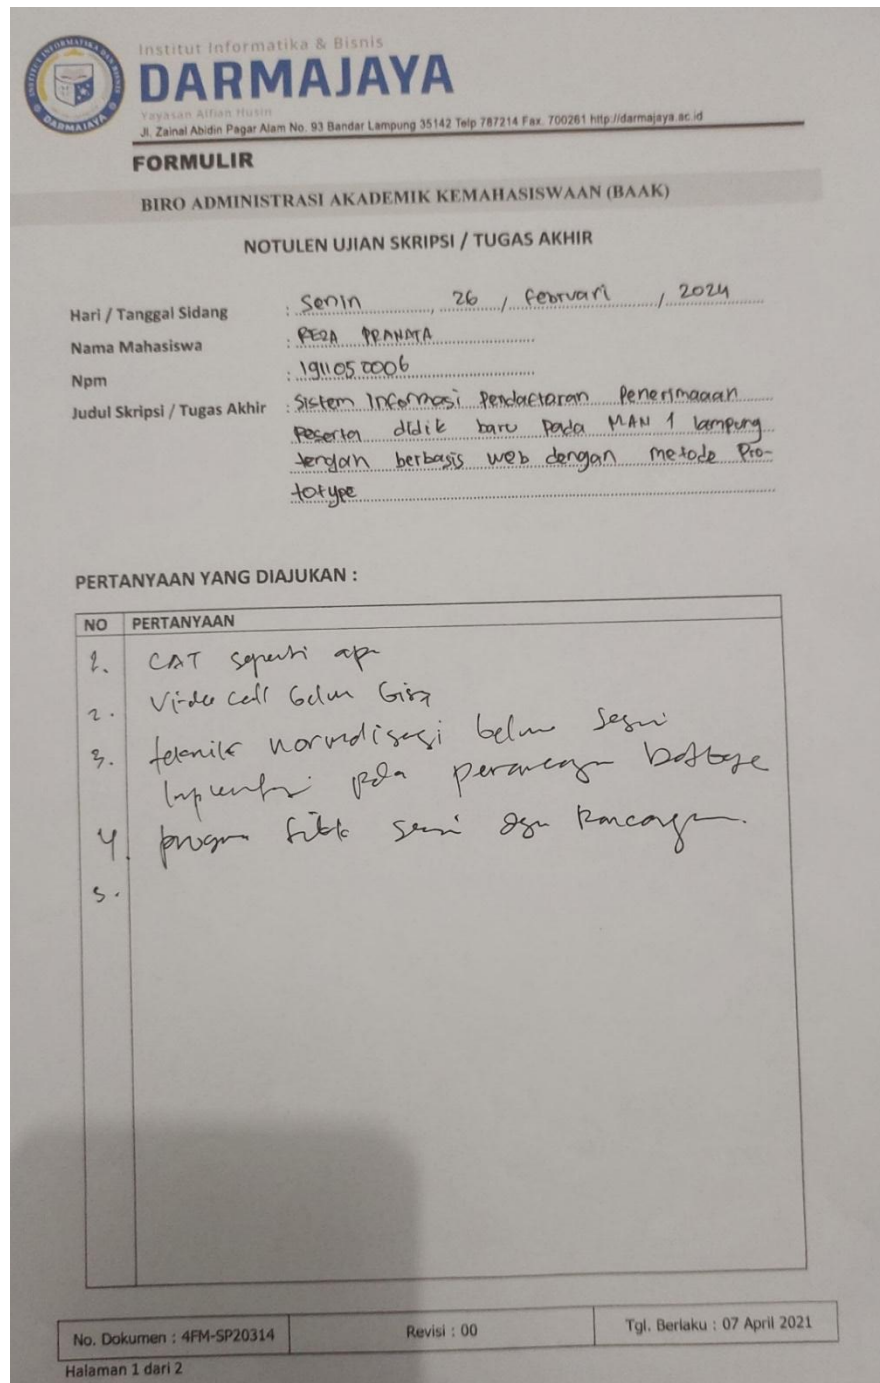 INSTITUT INFORMATIKA DAN BISNIS
DARMAJAYA
Institut Informatika & Bisnis
DARMAJAYA
Yayasan Alfian Husin
Jl. Zainal Abidin Pagar Alam No. 93 Bandar Lampung 35142 Telp 787214 Fax. 700261 http://darmajaya.ac.id
FORMULIR
BIRO ADMINISTRASI AKADEMIK KEMAHASISWAAN (BAAK)
NOTULEN UJIAN SKRIPSI / TUGAS AKHIR
Hari / Tanggal Sidang : Senin, 26 / Februari / 2024
Nama Mahasiswa : REZA PRANATA
Npm : 1911050006
Judul Skripsi / Tugas Akhir : Sistem Informasi Pendaftaran Penerimaaan
Peserta didik baru Pada MAN 1 lampung
tengah berbasis web dengan metode Pro-
totype
PERTANYAAN YANG DIAJUKAN :
NO PERTANYAAN
1. CAT seperti apa
2. Video call belum bisa
3. teknik normalisasi belum sesuai
pada
4. program
5.
No. Dokumen : 4FM-SP20314 Revisi : 00 Tgl. Berlaku : 07 April 2021
Halaman 1 dari 2